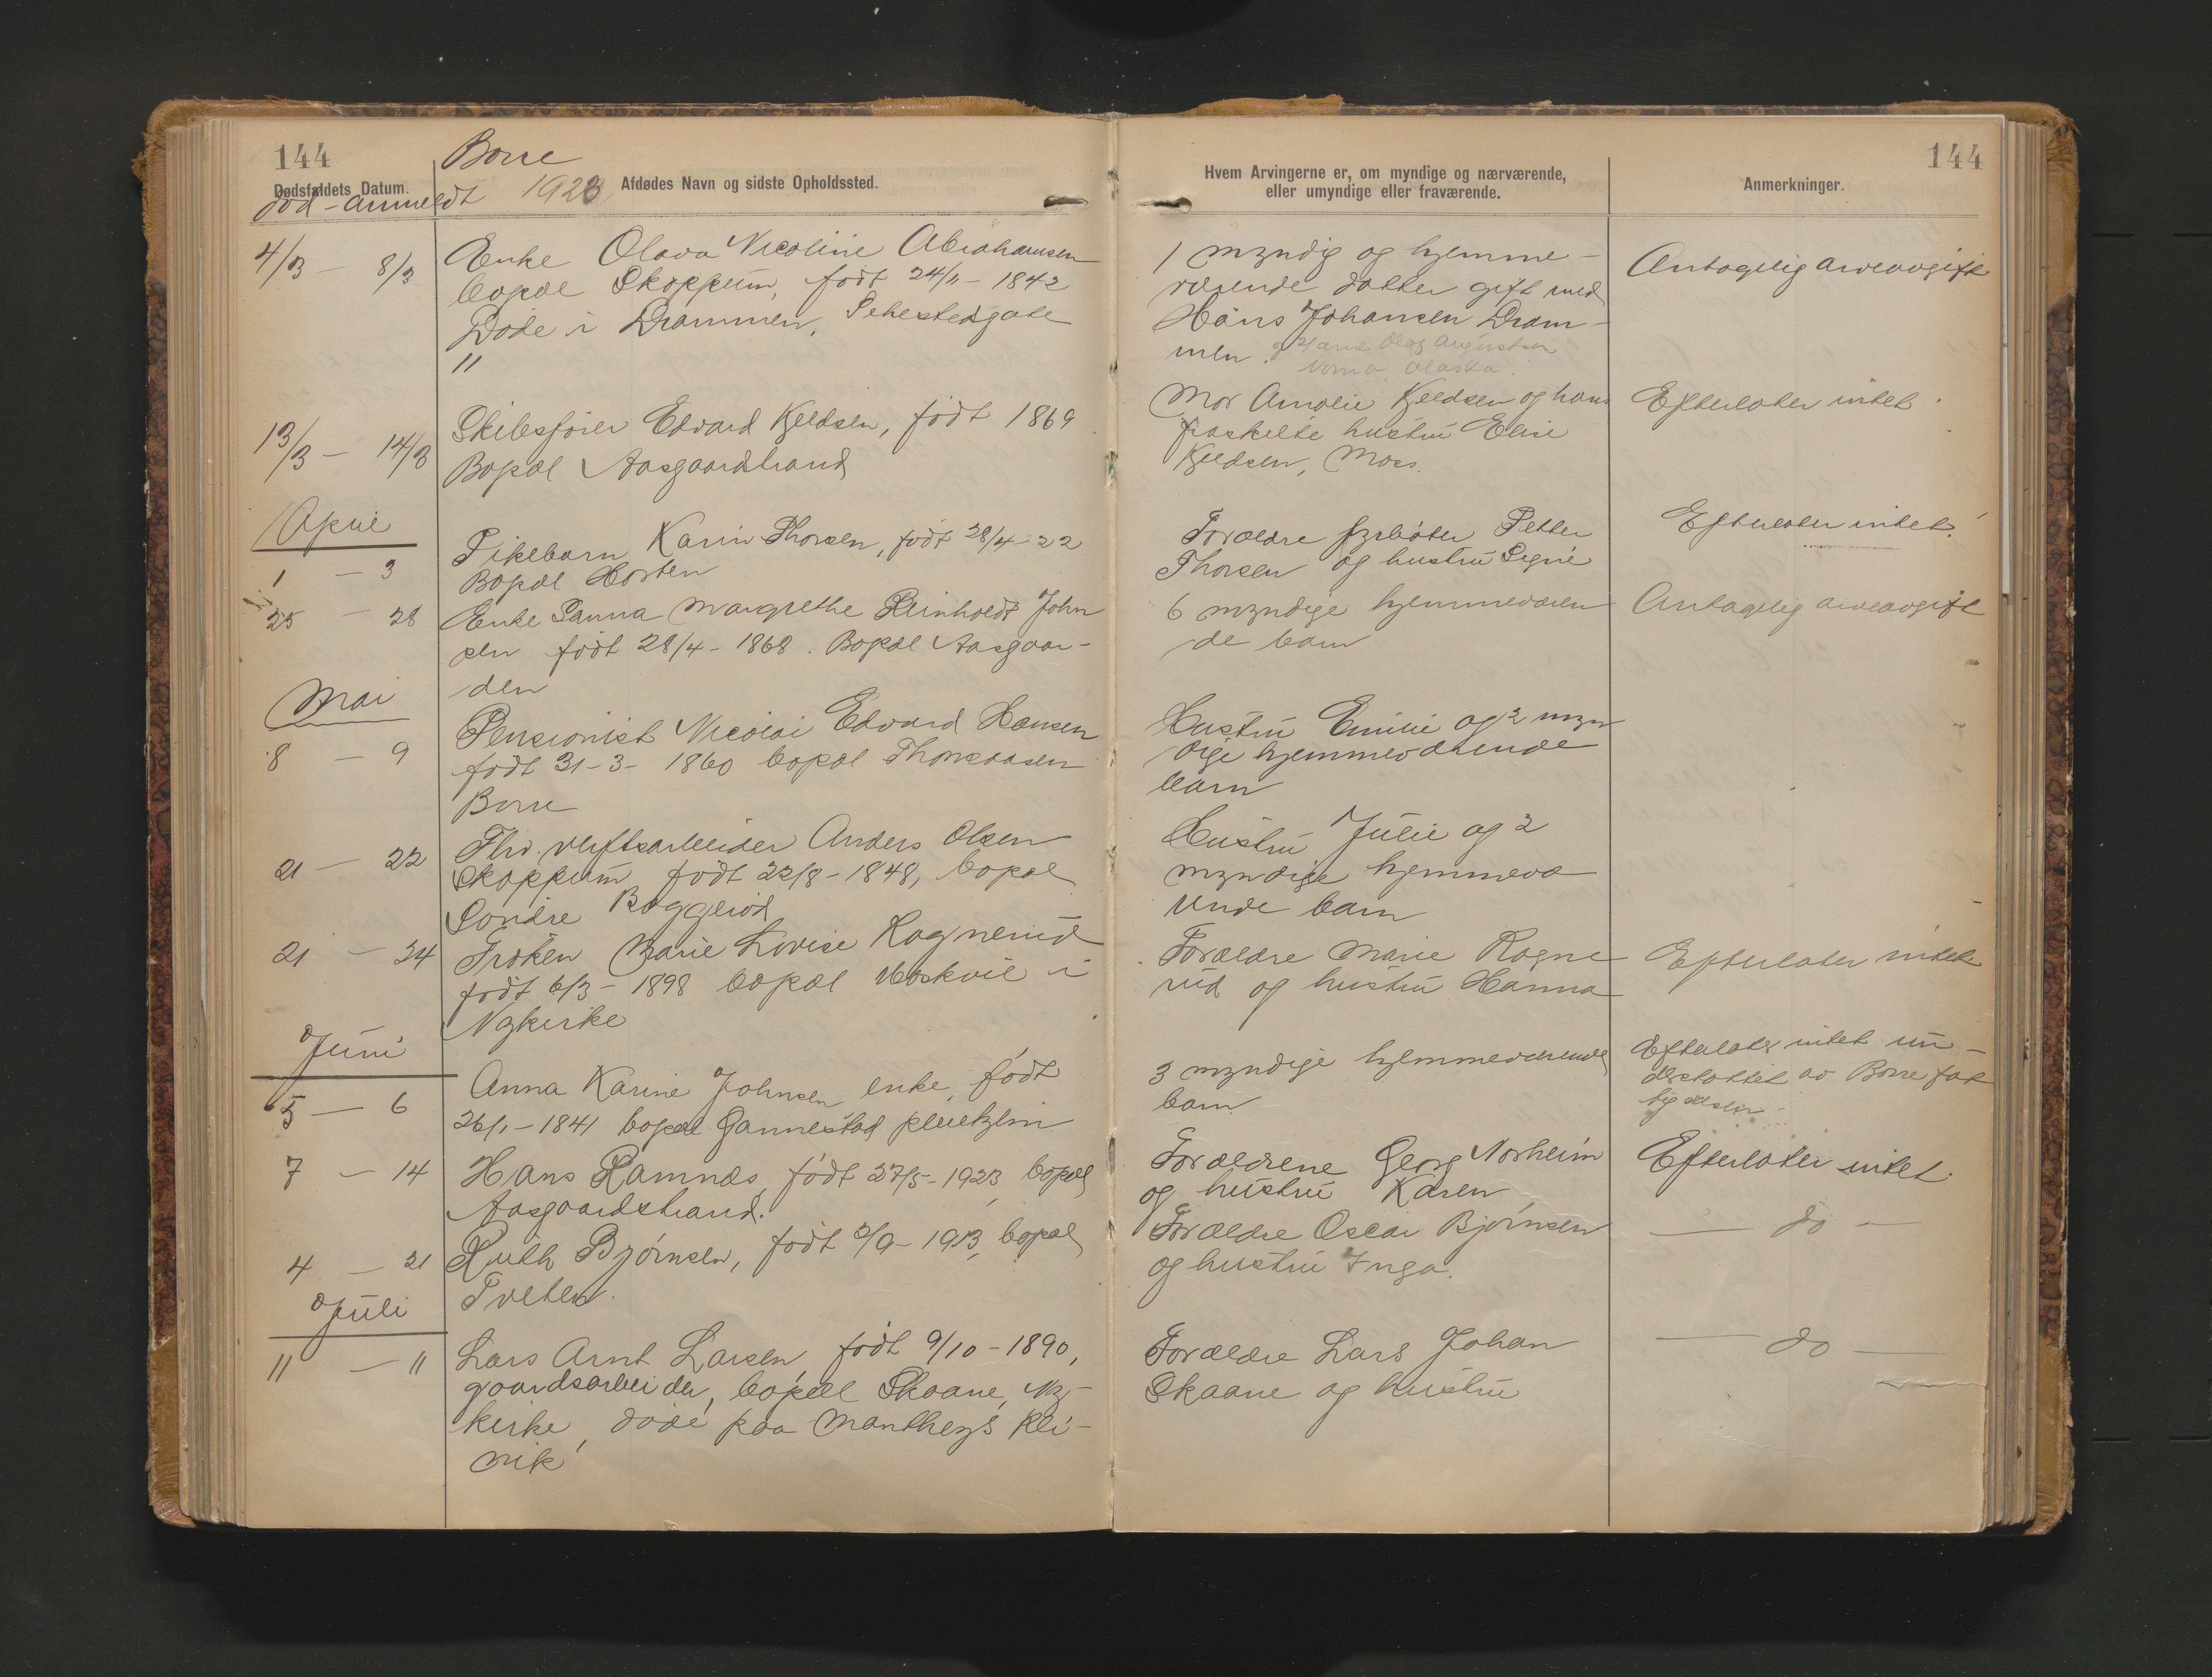 144
Borre
Dødsfaldets Datum.
død - anmeldt
1923
Afdødes Navn og sidste Opholdssted.
4/3 - 8/3
Enke Olava Nicoline Abrahamsen
bopæl Skoppum, født 24/11 - 1842
Døde i Drammen, Sehestedgate
11
13/3 - 14/3
Skibsfører Edvard Kjeldsen, født 1869
Bopæl Aasgaardstrand
April
1 - 3
Pikebarn Karin Thorsen, født 28/4 - 22
Bopæl Horten
25 - 28
Enke Sanna Margrethe Reinholdt John
sen født 28/4 - 1868. Bopæl Aasgaar-
den
Mai
8 - 9
Pensionist Nicolai Edvard Hansen
født 31-3- 1860 bopæl Thorsaasen
Borre
21 - 22
Fhv. verftsarbeider Anders Olsen
Skoppum født 22/8 - 1848, bopæl
Søndre
21 - 24
Frøken Marie Lovise Ragnerud
født 6/3 - 1898 bopæl i
Nykirke
Juni
5 - 6
Anna Karine Johnsen enke, født
26/1 - 1841 bopæl Gannestad pleiehjem
7 - 14
Hans Ramnæs, født 27/5 - 1923 bopæl
Aasgaardstrand.
4 - 21
Ruth Bjørnsen, født 3/9 - 1913, bopæl
Tveten.
Juli
11 - 11
Lars Arnt Larsen, født 9/10 - 1890,
gaardsarbeider, bopæl Skaane, Ny-
kirke, døde paa Mantheys kli-
nik
144
Hvem Arvingerne er, om myndige og nærværende,
eller umyndige eller fraværende.
Anmerkninger.
1 myndig og hjemme-
værende datter gift med
Hans Johansen Dram-
men. og Olaf Augustsen
Alaska.
Antagelig arveavgift
Mor Amalie Kjeldsen og hans
fraskilte hustru Elise
Kjeldsen, Moss.
Efterlater intet.
Forældre fyrbøter Petter
Thorsen og hustru Signe
Efterlater intet.
6 myndige hjemmeværen
de barn
Antagelig arveavgift
Hustru Emilie og 2 myn
dige hjemmeværende
barn
Hustru Julie og 2
myndige hjemmevæ
rende barn
Forældre Marie Ragne
rud og hustru Hanna
Efterlater intet
3 myndige hjemmeværende
barn
Efterlater intet un-
derstøttet av Borre fat
tigvæsen
Forældrene Georg Norheim
og hustru Karen
Efterlater intet.
Forældre Oscar Bjørnsen
og hustru Inga.
- do -
Forældre Lars Johan
Skaane og hustru
- do -